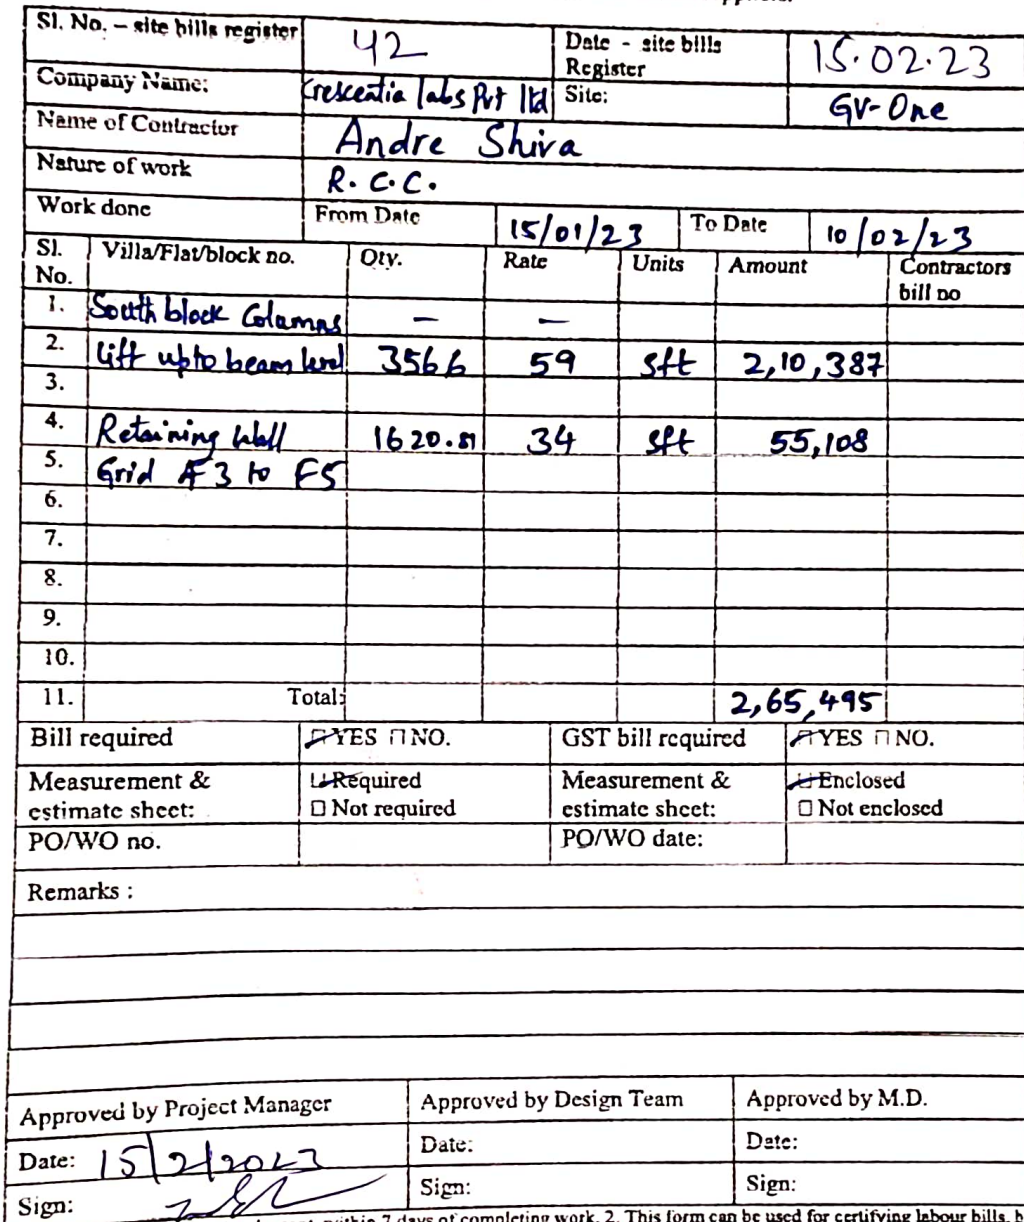 Sl. No. – site bills register 42 Date - site bills Register 15.02.23
Company Name: Crescentia labs Pvt ltd Site: GV-One
Name of Contractor Andre Shiva
Nature of work R.C.C.
Work done From Date 15/01/23 To Date 10/02/23
Sl. No. Villa/Flat/block no. Qty. Rate Units Amount Contractors bill no
1. South block Columns – –
2. lift upto beam level 3566 59 sft 2,10,387
3.
4. Retaining Wall 1620.81 34 sft 55,108
5. Grid F3 to F5
6.
7.
8.
9.
10.
11. Total: 2,65,495
Bill required YES NO. GST bill required YES NO.
Measurement & estimate sheet: Required Not required Measurement & estimate sheet: Enclosed Not enclosed
PO/WO no. PO/WO date:
Remarks :
Approved by Project Manager Approved by Design Team Approved by M.D.
Date: 15/2/2023 Date: Date:
Sign: Sign: Sign:
within 7 days of completing work. 2. This form can be used for certifying labour bills,